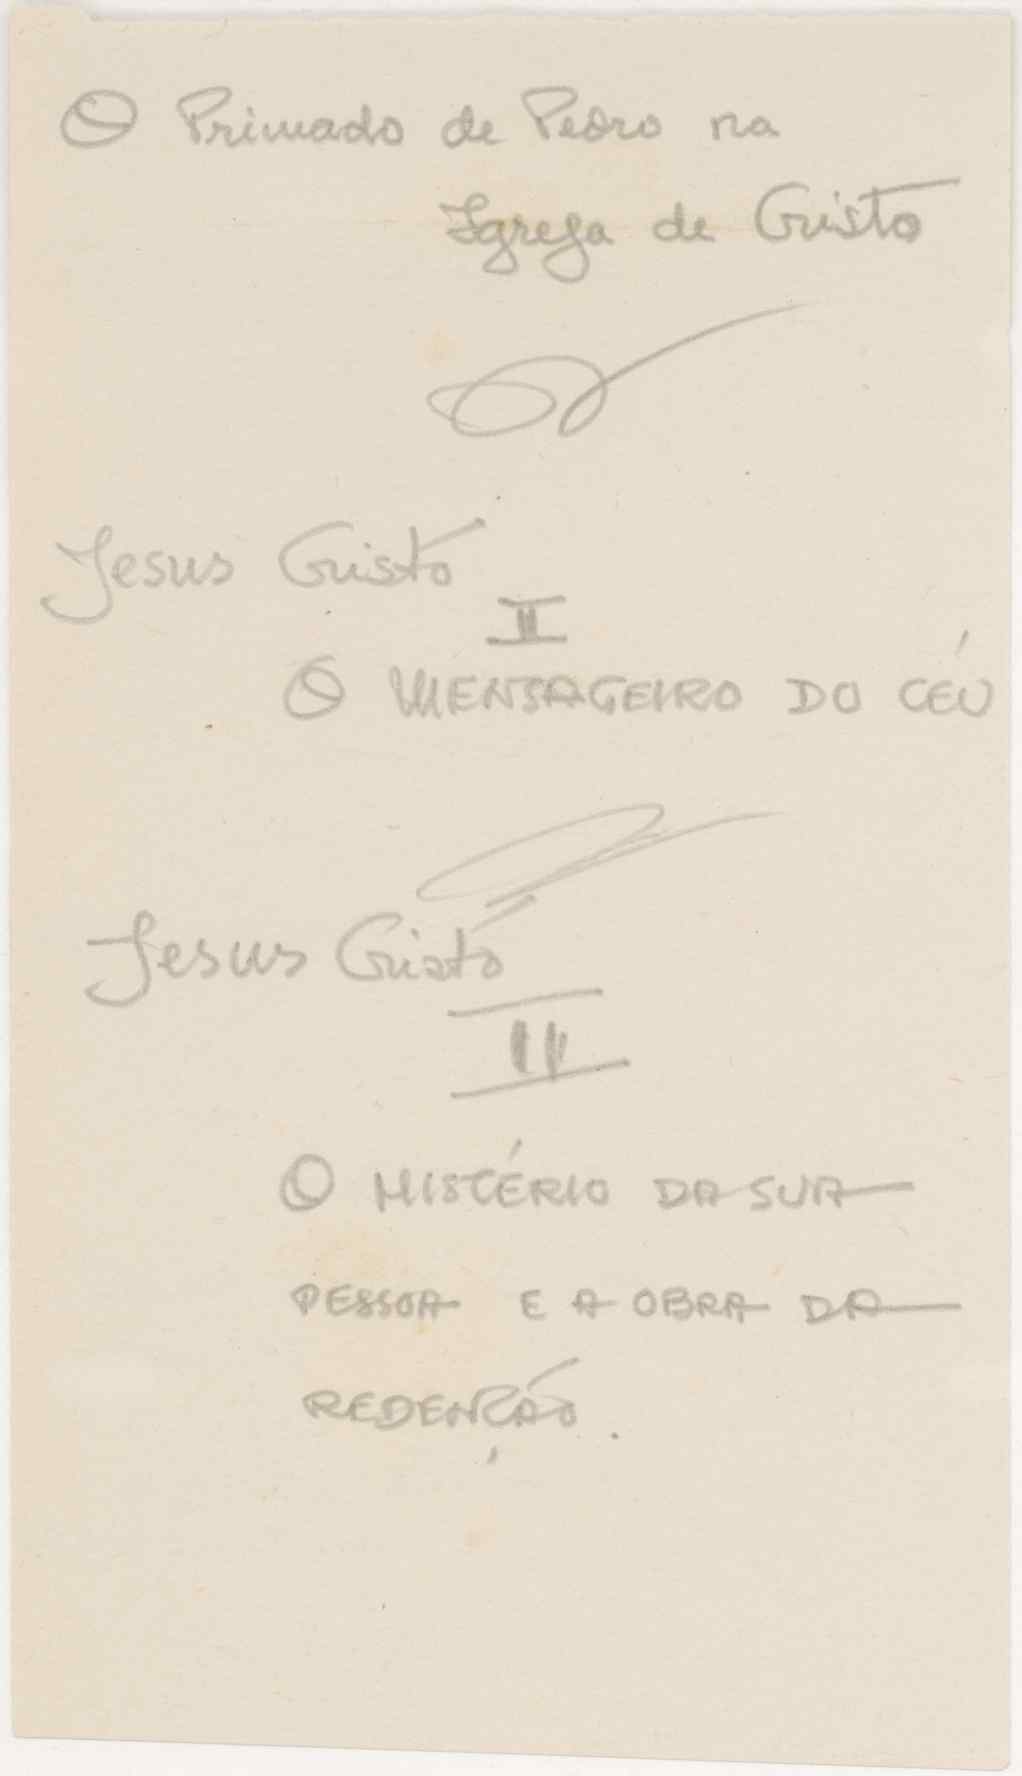 O Primado de Pedro na
Igreja de Cristo
Jesus Cristo
II
O MENSAGEIRO DO CÉU
Jesus Cristo
II
O MISTÉRIO DA SUA
PESSOA E A OBRA DA
REDENÇÃO.